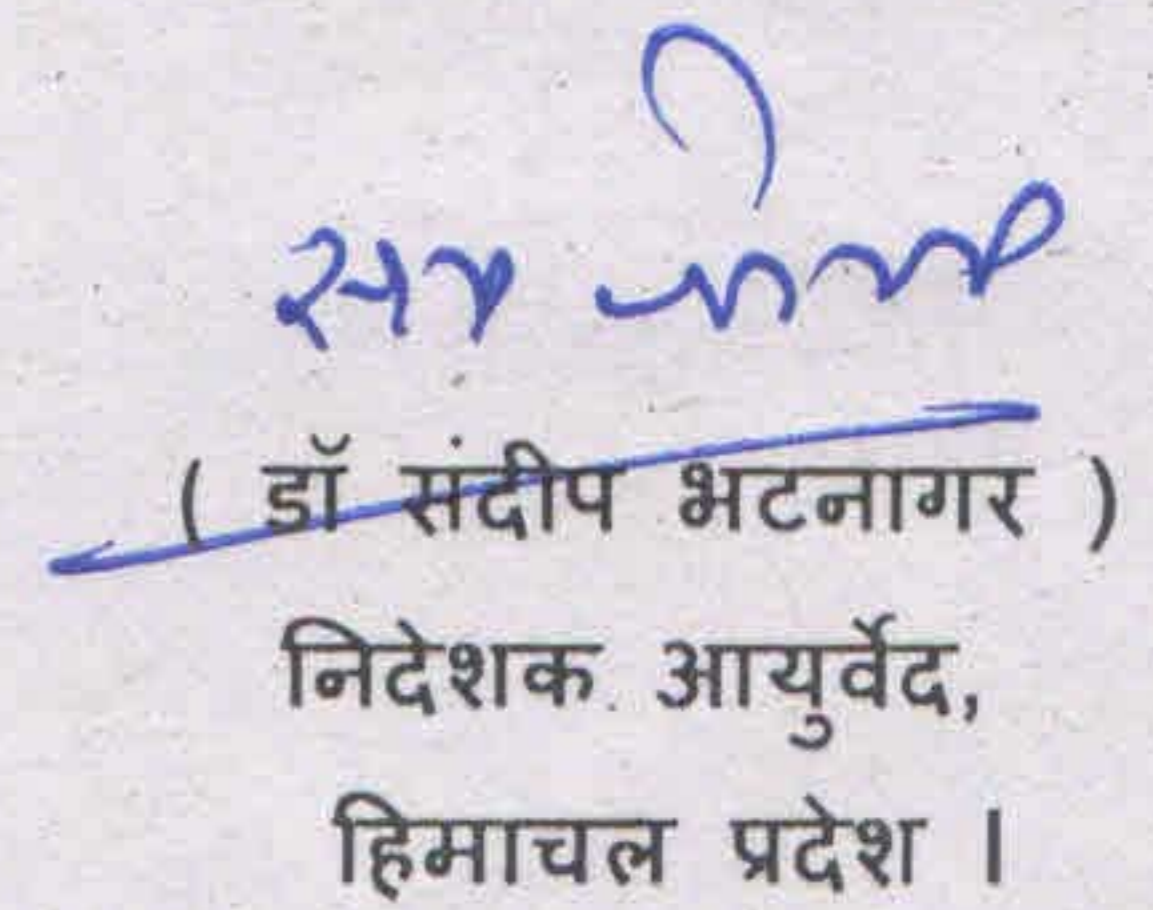 ( डॉ संदीप भटनागर )
निदेशक आयुर्वेद,
हिमाचल प्रदेश ।